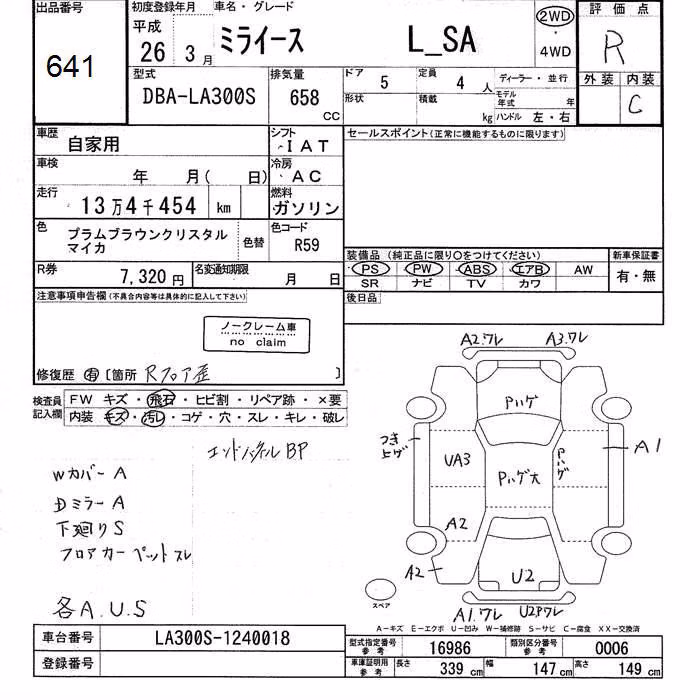 出品番号
641
初度登録年月 車名・グレード
平成
26 3月 ミライース L_SA
2WD
・
4WD
評価点
R
外装 内装
C
型式 排気量
DBA-LA300S 658 CC
ドア 5 定員 4 人
形状 積載 kg
ディーラー・並行
モデル年式 年
ハンドル 左・右
車歴 自家用
シフト IAT
車検 年 月( 日)
冷房 AC
走行 13万4千454 km
燃料 ガソリン
色 プラムブラウンクリスタル
マイカ
色替
色コード R59
R券 7,320円
名変通知期限 月 日
セールスポイント(正常に機能するものに限ります)
装備品(純正品に限り○をつけてください)
新車保証書
PS PW ABS エアB AW
SR ナビ TV カワ
有・無
後日品
注意事項申告欄(不具合内容等は具体的に記入して下さい)
ノークレーム車
no claim
修復歴 有 [箇所 Rフロア歪 ]
検査員
記入欄
FW キズ・飛石・ヒビ割・リペア跡・×要
内装 キズ・汚レ・コゲ・穴・スレ・キレ・破レ
エンドパネル BP
Wカバー A
Dミラー A
下廻り S
フロアカーペットスレ
各A.U.S
A2.ワレ
A3.ワレ
Pハゲ
つき
ヒゲ
UA3
Pハゲ大
Pハゲ
A1
A2
A2
U2
A1.ワレ
U2Pワレ
スペア
A−キズ E−エクボ U−凹み W−補修跡 S−サビ C−腐食 XX−交換済
車台番号 LA300S-1240018
登録番号
型式指定番号
参考
16986
類別区分番号
参考
0006
車庫証明用
参考
長さ 339 cm 幅 147 cm 高さ 149 cm